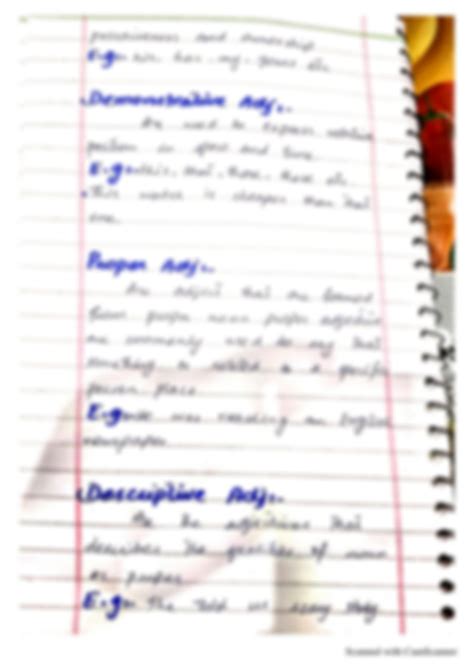 possessiveness and ownership.
E.g:- his, her, my, yours etc.
Demonstrative Adj:-
Are used to express relative
position in space and time.
E.g:- this, that, those, these etc.
This watch is cheaper than that
one.
Proper Adj:-
Are adject that are formed
from proper noun proper adjective
are commonly used to say that
something is related to a specific
person place
E.g:- was reading an English
newspaper
Descriptive Adj:-
Are the adjectives that
describes the qualities of noun
or
E.g:- The told us
Scanned with CamScanner